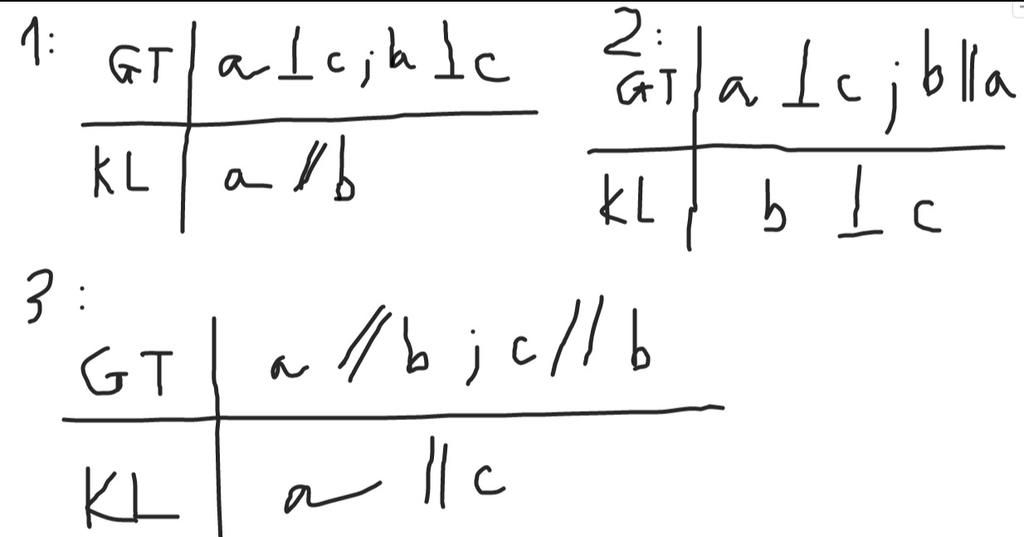 1:
GT | a ⊥ c ; b ⊥ c
KL | a // b
2:
GT | a ⊥ c ; b // a
KL | b ⊥ c
3:
GT | a // b ; c // b
KL | a // c